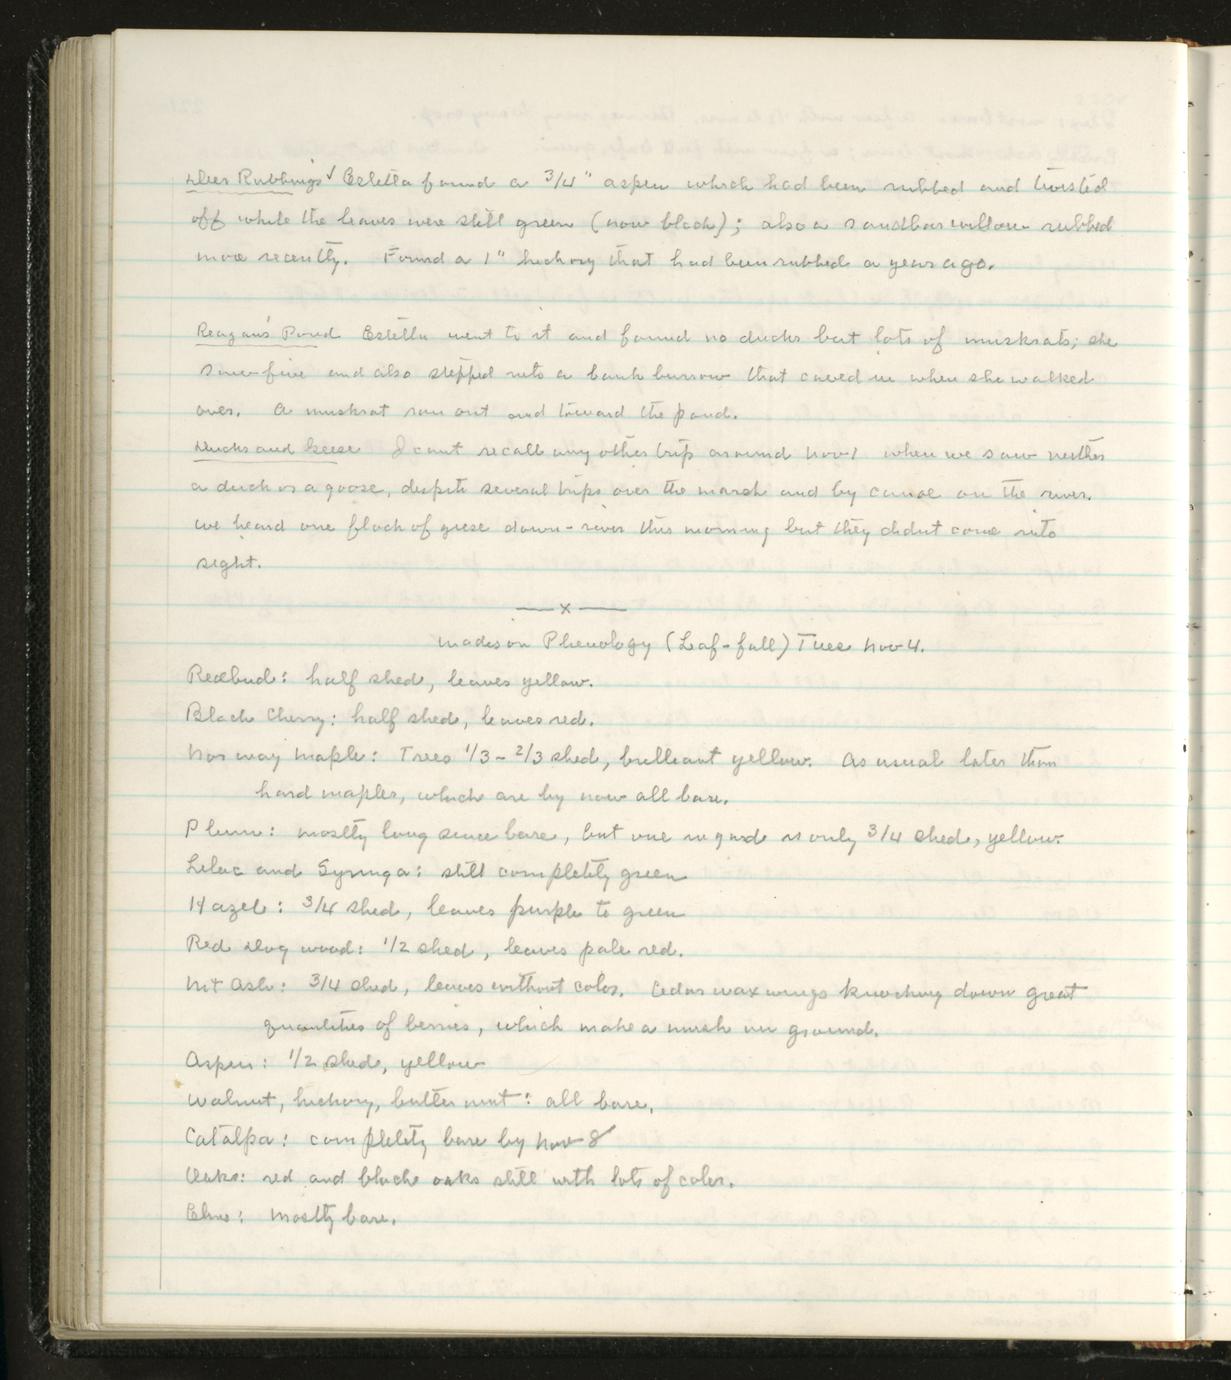 Deer Rubbings ✓ Estella found a 3/4" aspen which had been rubbed and twisted
off while the leaves were still green (now black); also a sandbar willow rubbed
more recently. Found a 1" hickory that had been rubbed a year ago.
Reagan's Pond Estella went to it and found no ducks but lots of muskrats; she
saw five and also stepped into a bank burrow that caved in when she walked
over. A muskrat ran out and toward the pond.
Ducks and Geese I cant recall any other trip around Nov 1 when we saw neither
a duck or a goose, despite several trips over the marsh and by canoe on the river.
We heard one flock of geese down-river this morning but they didnt come into
sight.
—x—
Madison Phenology (Leaf-fall) Tues Nov 4.
Redbud: half shed, leaves yellow.
Black Cherry: half shed, leaves red.
Norway Maple: Trees 1/3 - 2/3 shed, brilliant yellow. As usual later than
hard maples, which are by now all bare.
Plum: mostly long since bare, but one in yard is only 3/4 shed, yellow.
Lilac and Syringa: still completely green
Hazel: 3/4 shed, leaves purple to green
Red Dogwood: 1/2 shed, leaves pale red.
Mt Ash: 3/4 shed, leaves without color. Cedar waxwings knocking down great
quantities of berries, which make a mush on ground.
Aspen: 1/2 shed, yellow
Walnut, hickory, butternut: all bare.
Catalpa: completely bare by Nov 8
Oaks: red and black oaks still with lots of color.
Elms: Mostly bare.